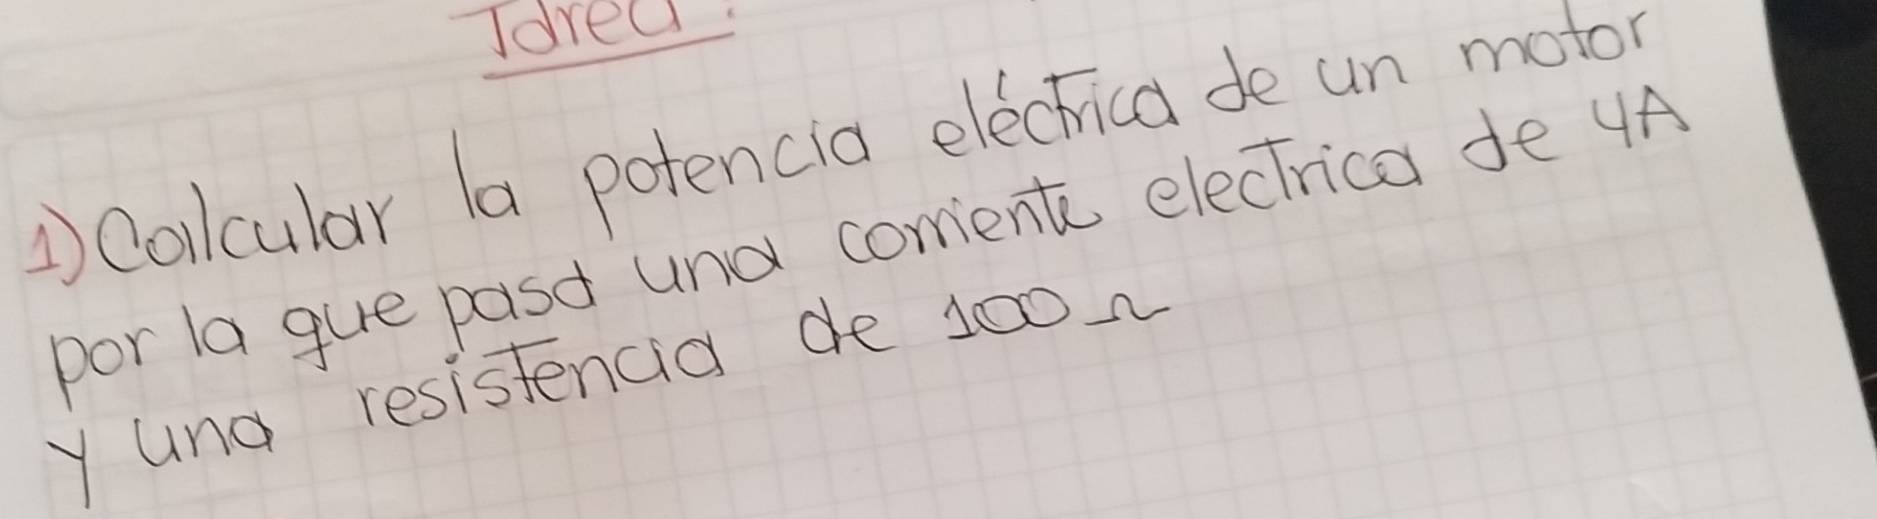 Tarea:
1) Calcular la potencia eléctrica de un motor
por la que pasa una corriente electrica de 4A
y una resistencia de 100 Ω